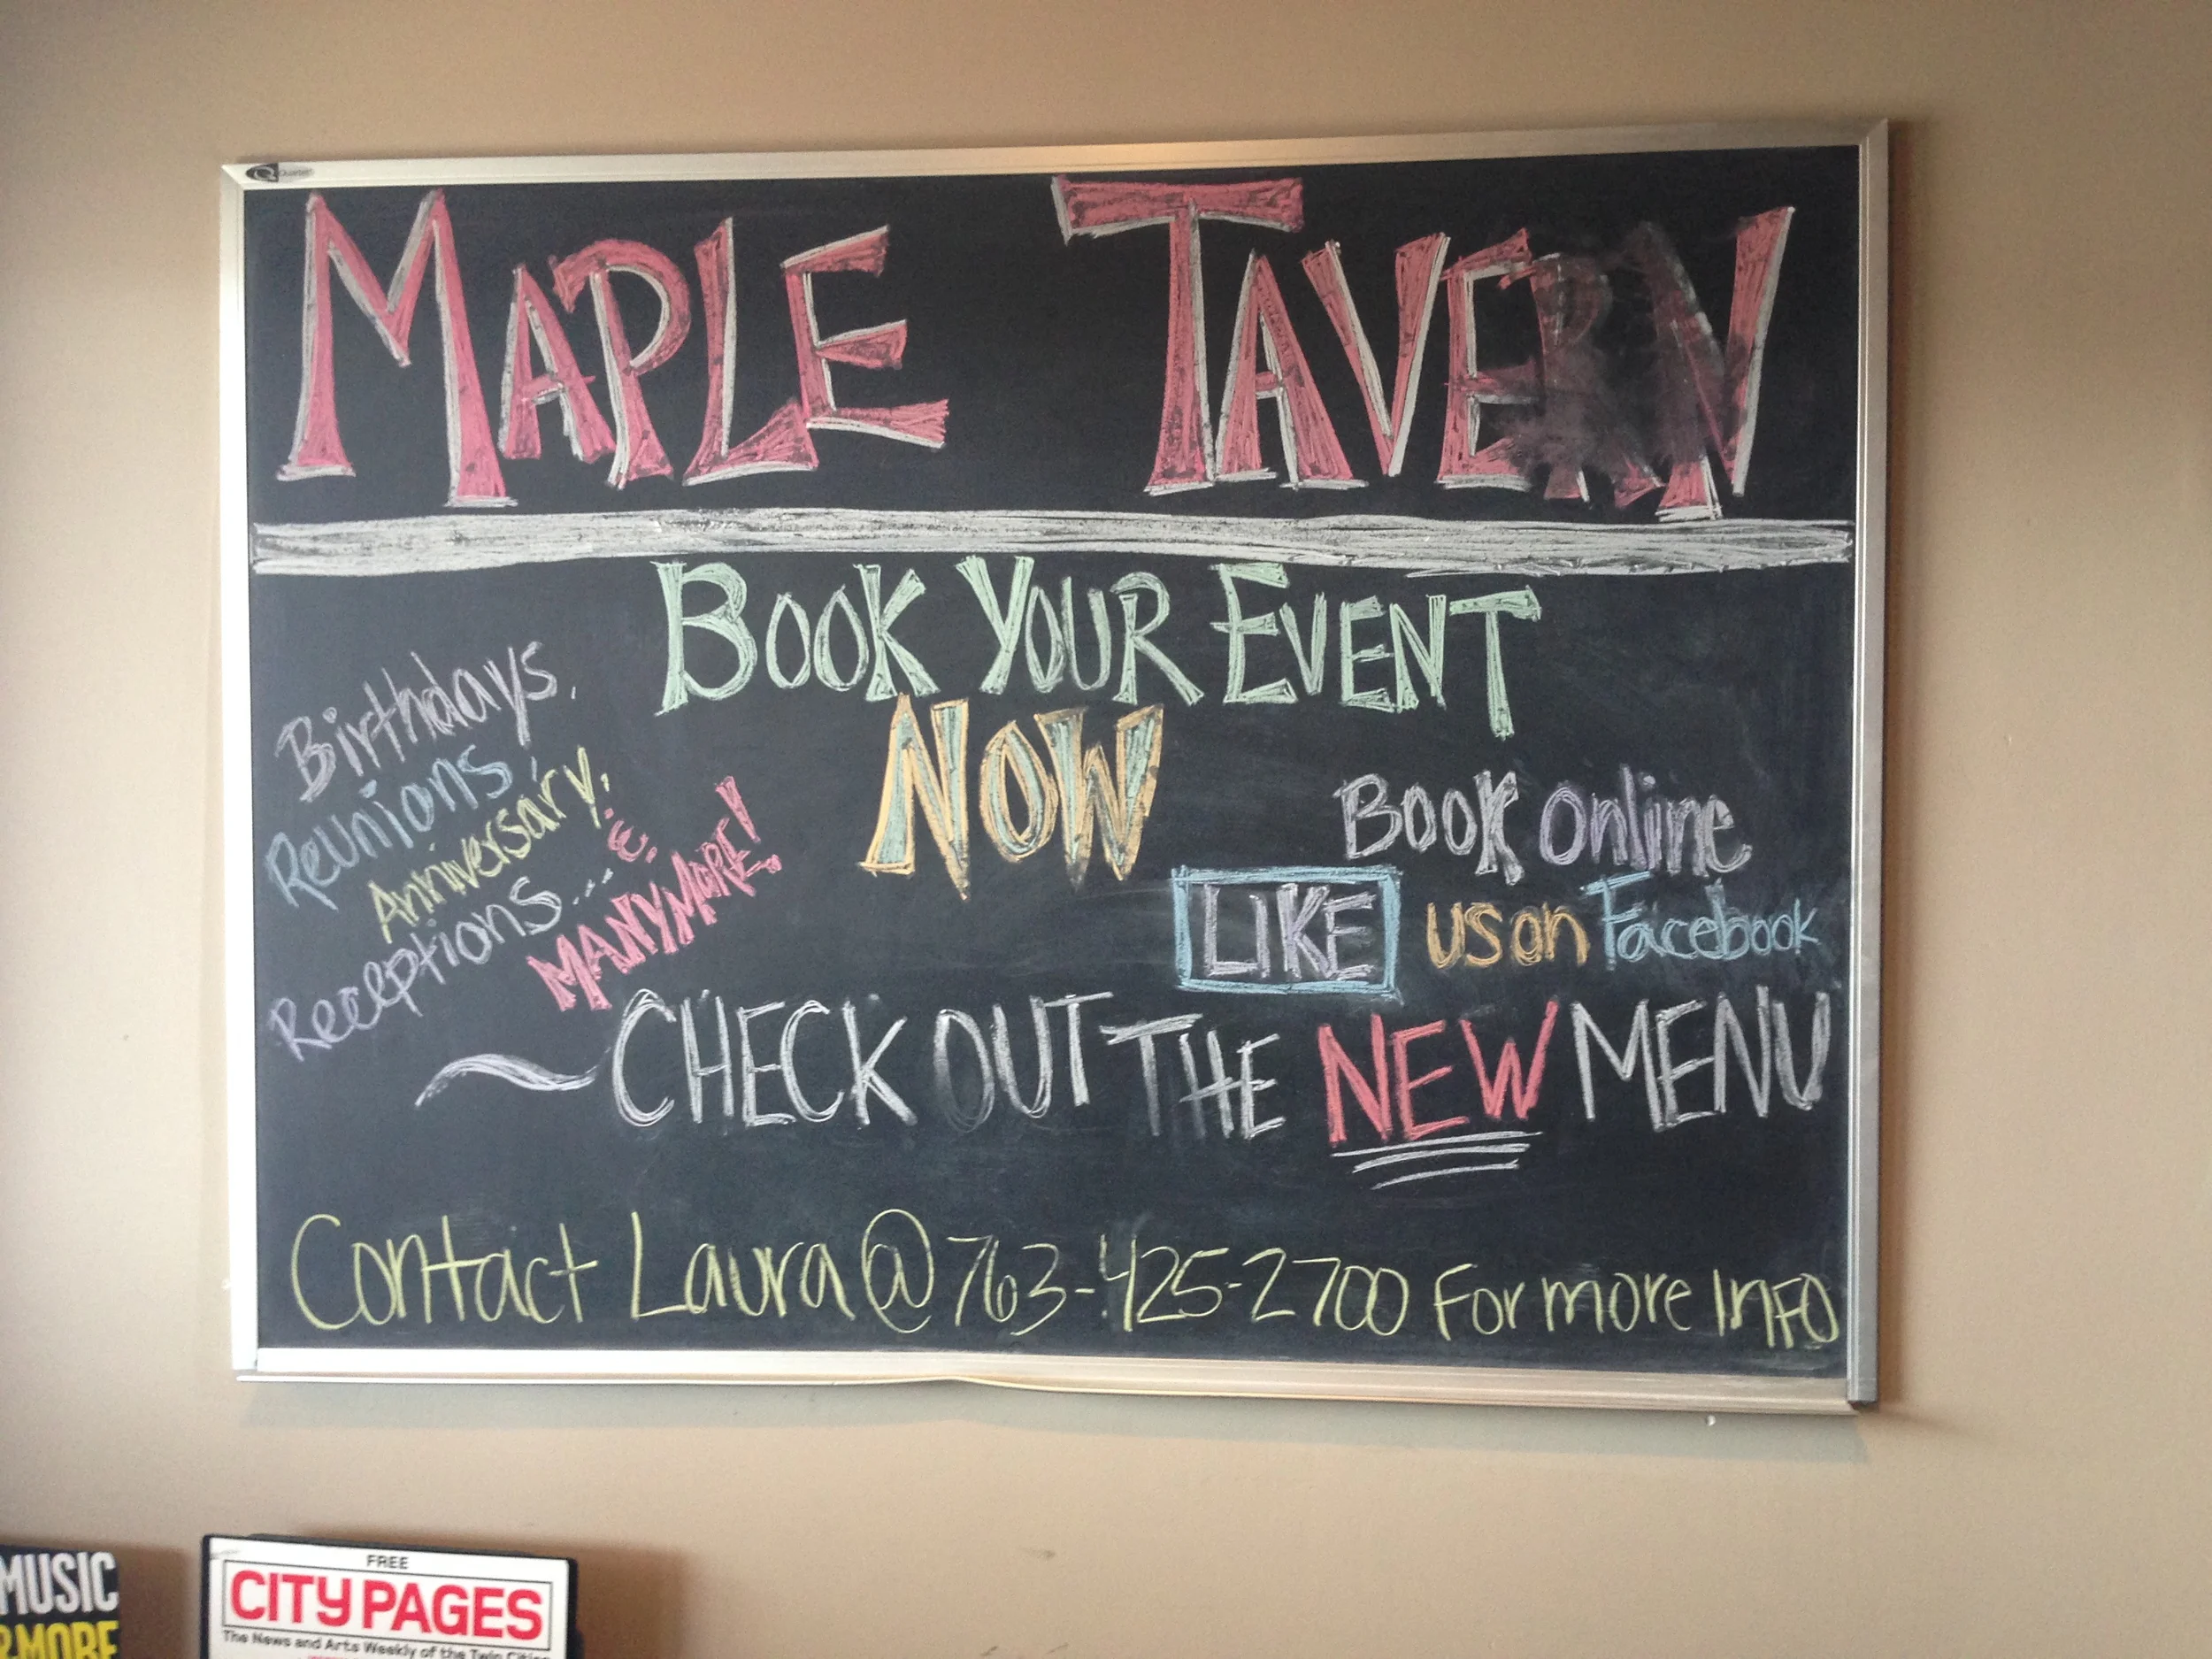 Quartet
MAPLE TAVERN
BOOK YOUR EVENT
NOW
Birthdays,
Reunions,
Anniversary,
Receptions... &
MANY MORE!
BOOK online
LIKE us on Facebook
~ CHECK OUT THE NEW MENU
Contact Laura @ 763-425-2700 For more InFO
MUSIC
&MORE
FREE
CITY PAGES
The News and Arts Weekly of the Twin Cities